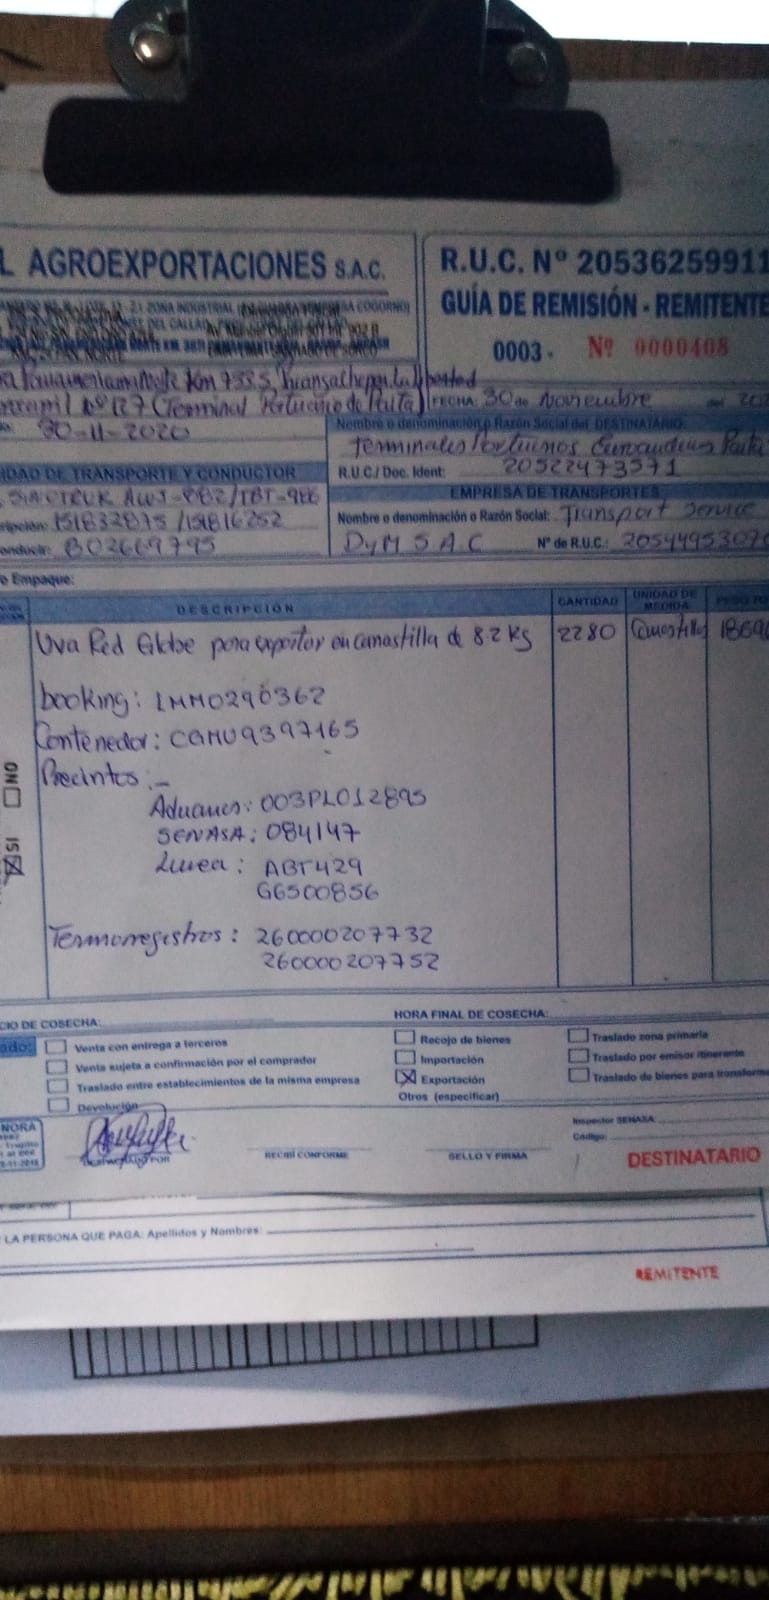 L AGROEXPORTACIONES S.A.C.
R.U.C. Nº 20536259911
GUÍA DE REMISIÓN - REMITENTE
0003 - Nº 0000408
ZONA INDUSTRIAL
Km 755.5
Nº 127 (Terminal Portuario de Paita) FECHA: 30 de Noviembre del 202
30-11-2020
Nombre o denominación o Razón Social del DESTINATARIO:
Terminales Portuarios Euroandinos Paita
R.U.C./ Doc. Ident: 20522473571
IDAD DE TRANSPORTE Y CONDUCTOR
EMPRESA DE TRANSPORTES
SINOTRUK
ripción: 151832875 / 151816252
Nombre o denominación o Razón Social: Transport Service
onducir: B02669795
DyM S.A.C Nº de R.U.C.: 2054495307
o Empaque:
DESCRIPCIÓN CANTIDAD UNIDAD DE MEDIDA PESO
Uva Red Globe para exportar en canastilla de 8.2 KS 2280 Canastillas 1869
booking: LMM0290362
Contenedor: CGMU9397165
Precintos:-
Aduanas: 003PL012895
SENASA: 084147
Linea: ABT429
G6500856
Termorregistros: 260000207732
260000207752
NO
SI
CIO DE COSECHA: HORA FINAL DE COSECHA:
ado:
Venta con entrega a terceros
Venta sujeta a confirmación por el comprador
Traslado entre establecimientos de la misma empresa
Devolución
Recojo de bienes
Importación
Exportación
Otros (especificar)
Traslado zona primaria
Traslado por emisor itinerante
Traslado de bienes para transforma
NORA
Inspector SENASA:
Código:
DESPACHADO POR RECIBÍ CONFORME SELLO Y FIRMA
DESTINATARIO
LA PERSONA QUE PAGA: Apellidos y Nombres:
REMITENTE